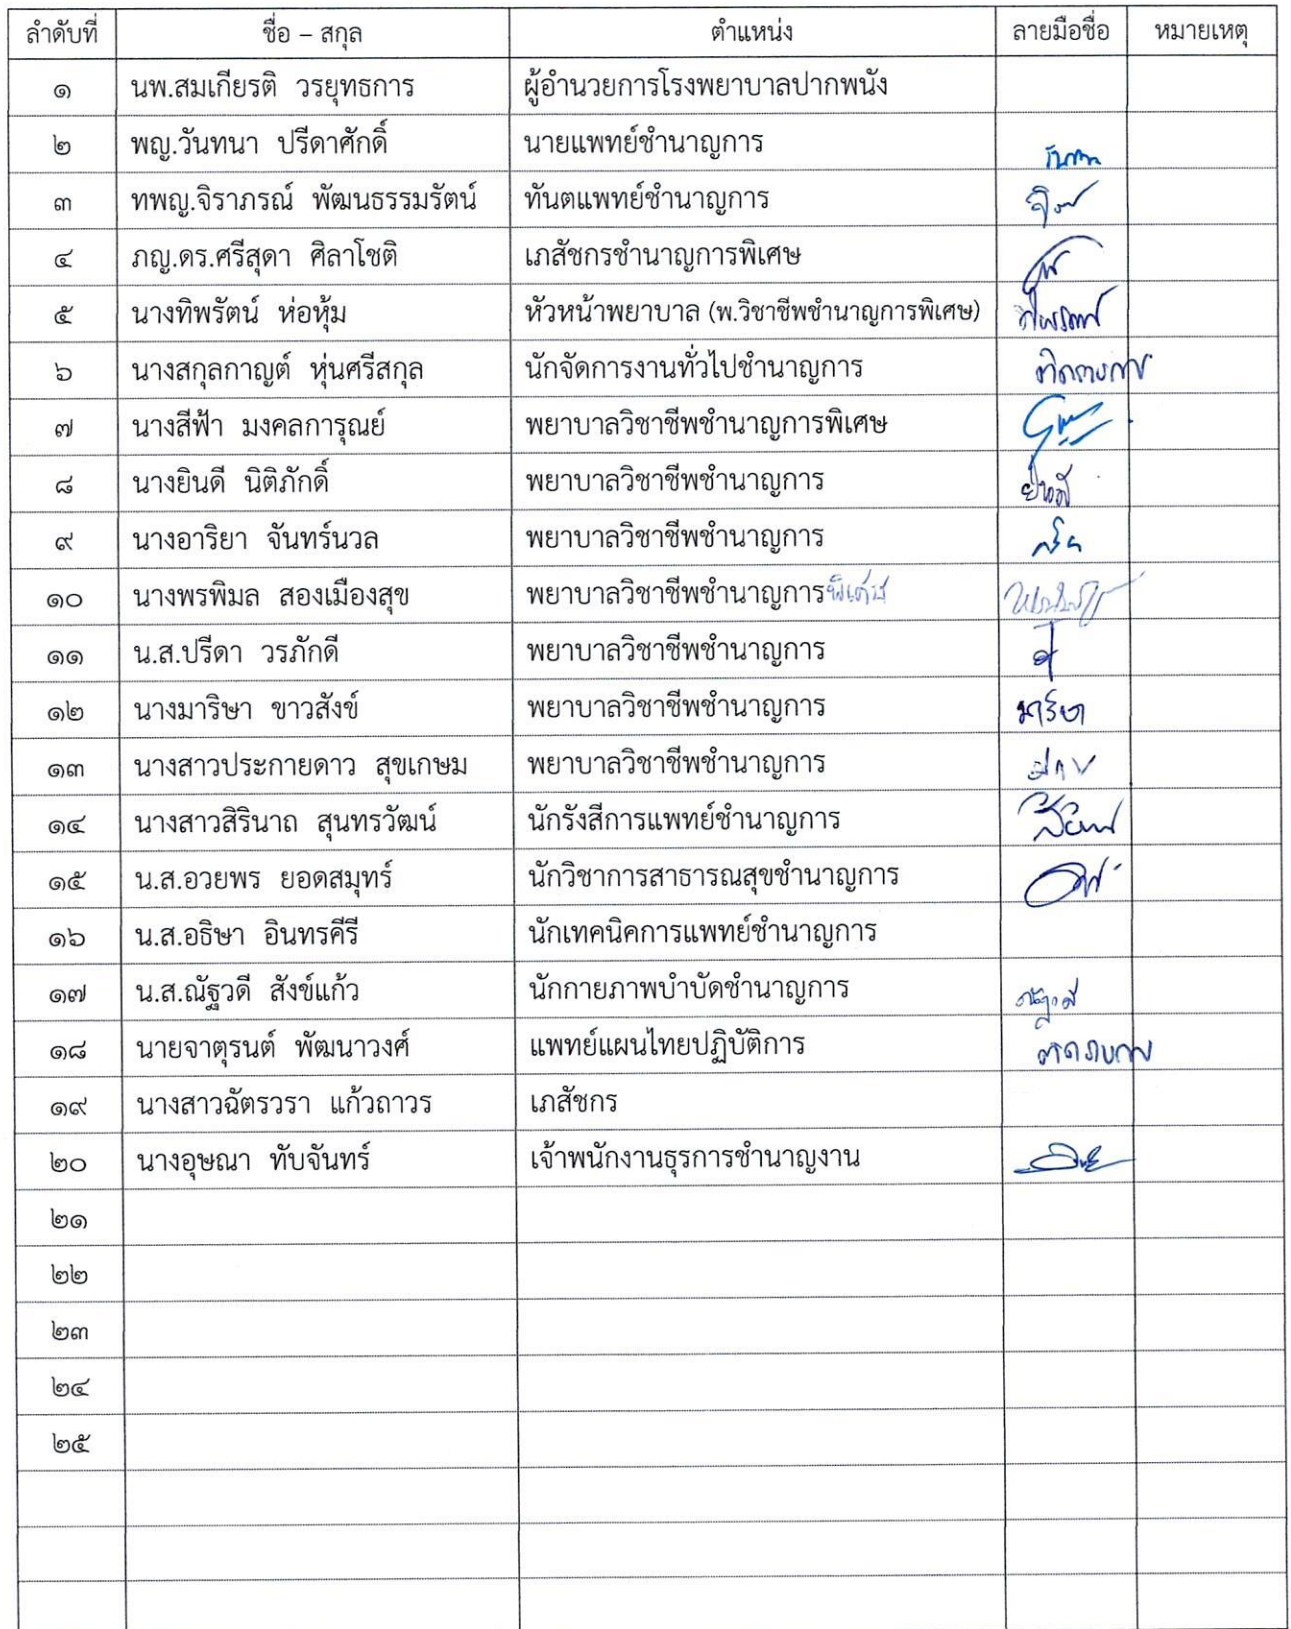 ลำดับที่ ชื่อ – สกุล ตำแหน่ง ลายมือชื่อ หมายเหตุ
๑ นพ.สมเกียรติ วรยุทธการ ผู้อำนวยการโรงพยาบาลปากพนัง
๒ พญ.วันทนา ปรีดาศักดิ์ นายแพทย์ชำนาญการ
๓ ทพญ.จิราภรณ์ พัฒนธรรมรัตน์ ทันตแพทย์ชำนาญการ
๔ ภญ.ดร.ศรีสุดา ศิลาโชติ เภสัชกรชำนาญการพิเศษ
๕ นางทิพรัตน์ ห่อหุ้ม หัวหน้าพยาบาล (พ.วิชาชีพชำนาญการพิเศษ) ทิพรัตน์
๖ นางสกุลกาญต์ หุ่นศรีสกุล นักจัดการงานทั่วไปชำนาญการ ติดราชการ
๗ นางสีฟ้า มงคลการุณย์ พยาบาลวิชาชีพชำนาญการพิเศษ
๘ นางยินดี นิติภักดิ์ พยาบาลวิชาชีพชำนาญการ ยินดี
๙ นางอาริยา จันทร์นวล พยาบาลวิชาชีพชำนาญการ
๑๐ นางพรพิมล สองเมืองสุข พยาบาลวิชาชีพชำนาญการพิเศษ
๑๑ น.ส.ปรีดา วรภักดี พยาบาลวิชาชีพชำนาญการ
๑๒ นางมาริษา ขาวสังข์ พยาบาลวิชาชีพชำนาญการ มาริษา
๑๓ นางสาวประกายดาว สุขเกษม พยาบาลวิชาชีพชำนาญการ
๑๔ นางสาวสิรินาถ สุนทรวัฒน์ นักรังสีการแพทย์ชำนาญการ
๑๕ น.ส.อวยพร ยอดสมุทร์ นักวิชาการสาธารณสุขชำนาญการ
๑๖ น.ส.อธิษา อินทรคีรี นักเทคนิคการแพทย์ชำนาญการ
๑๗ น.ส.ณัฐวดี สังข์แก้ว นักกายภาพบำบัดชำนาญการ ณัฐวดี
๑๘ นายจาตุรนต์ พัฒนาวงศ์ แพทย์แผนไทยปฏิบัติการ ติดราชการ
๑๙ นางสาวฉัตรวรา แก้วถาวร เภสัชกร
๒๐ นางอุษณา ทับจันทร์ เจ้าพนักงานธุรการชำนาญงาน
๒๑
๒๒
๒๓
๒๔
๒๕